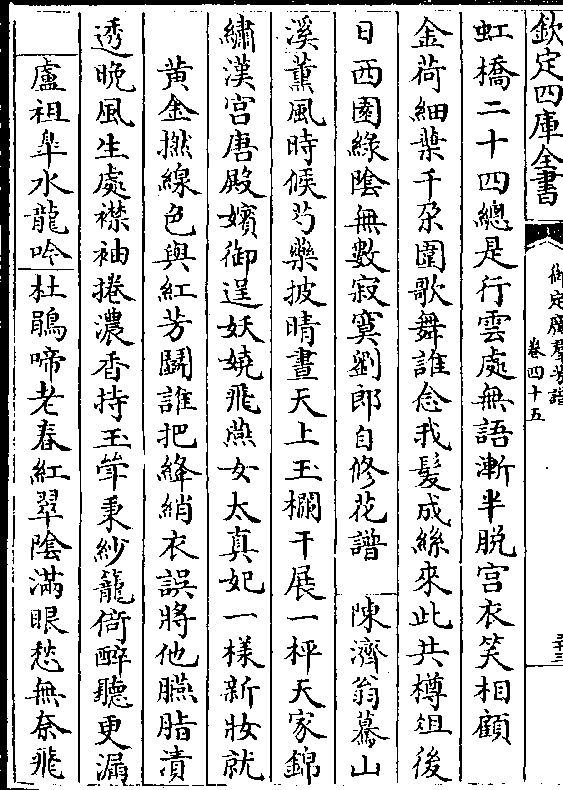 欽定四庫全書
御定廣羣芳譜
卷四十五
虹橋二十四總是行雲處無語漸半脱宫衣笑相顧
金荷細葉千朶圍歌舞誰念我髮成絲來此共樽俎後
日西園緑陰無數寂寞劉郎自修花譜
陳濟翁驀山
溪薰風時候芍藥披晴晝天上玉欄干展一枰天家錦
繡漢宫唐殿嬪御逞妖嬈飛燕女太真妃一様新妝就
黄金撚線色與紅芳鬭誰把絳綃衣誤將他臙脂漬
透晚風生處襟袖捲濃香持玉斝秉紗籠倚醉聽更漏
盧祖臯水龍吟
杜鵑啼老春紅翠陰滿眼愁無奈飛